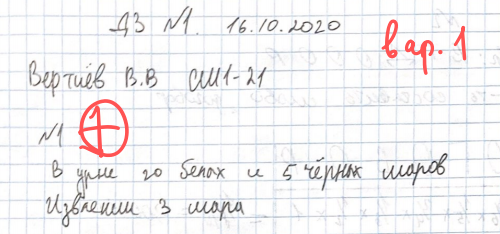 ДЗ №1. 16.10.2020
вар. 1
Вертиёв В.В СМ1-21
№1 1
В урне 20 белых и 5 чёрных шаров
Извлекли 3 шара